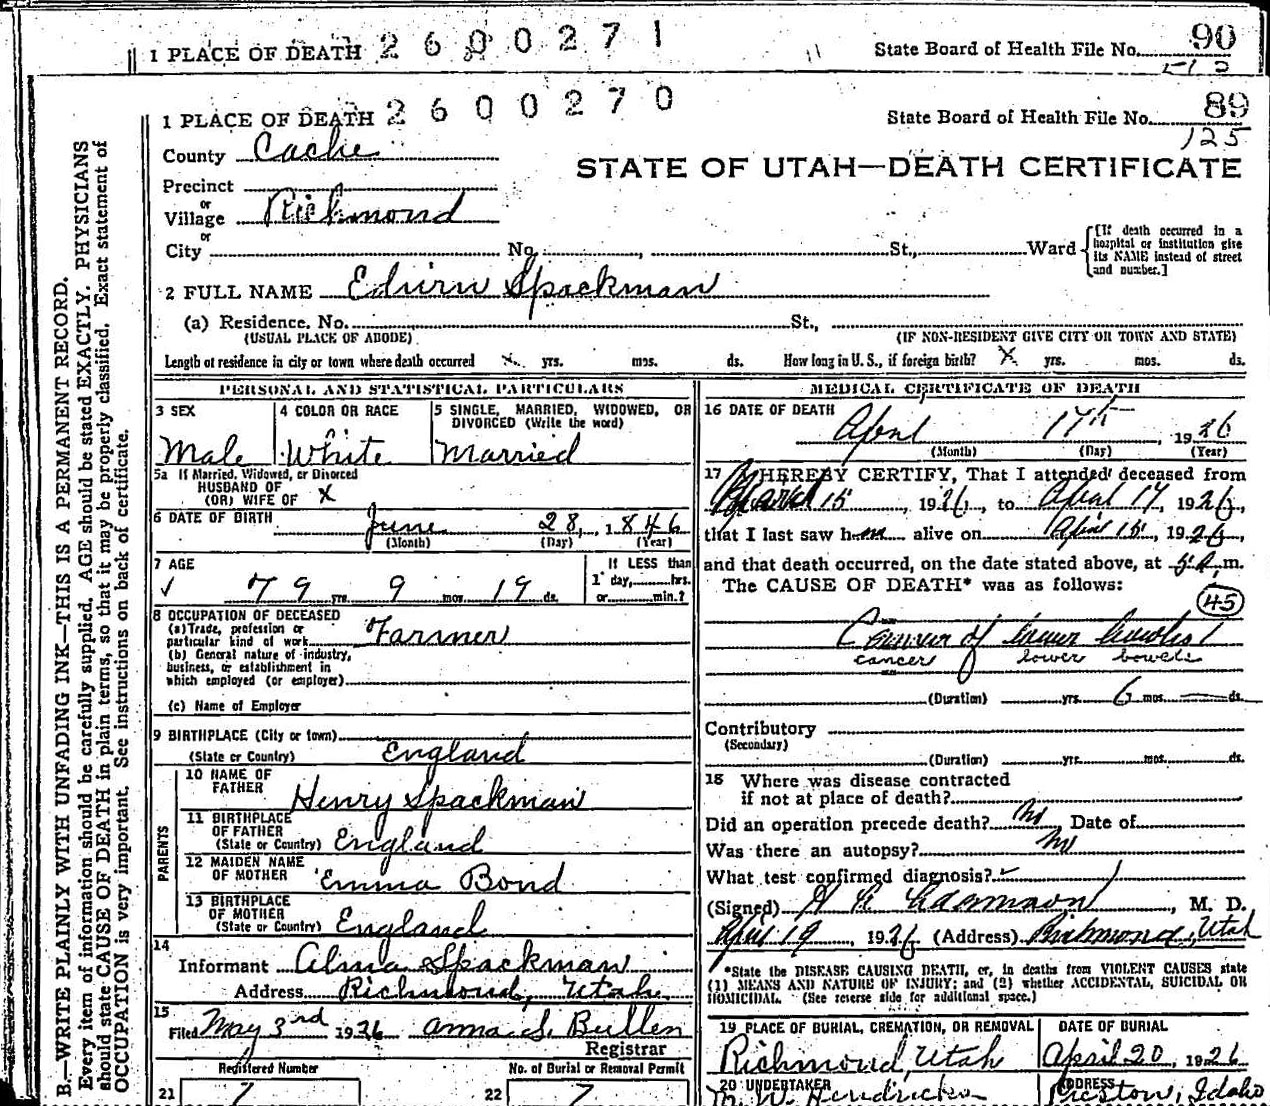 1 PLACE OF DEATH 2600271 State Board of Health File No. 90
1 PLACE OF DEATH 2600270 State Board of Health File No. 89
125
County Cache
STATE OF UTAH—DEATH CERTIFICATE
Precinct
or
Village Richmond
or
City No. , St., Ward [If death occurred in a hospital or institution give its NAME instead of street and number.]
2 FULL NAME Edwin Spackman
(a) Residence. No. St.,
(USUAL PLACE OF ABODE) (IF NON-RESIDENT GIVE CITY OR TOWN AND STATE)
Length of residence in city or town where death occurred x yrs. mos. ds. How long in U. S., if foreign birth? X yrs. mos. ds.
PERSONAL AND STATISTICAL PARTICULARS
3 SEX 4 COLOR OR RACE 5 SINGLE, MARRIED, WIDOWED, OR
DIVORCED (Write the word)
Male White Married
5a If Married, Widowed, or Divorced
HUSBAND OF
(OR) WIFE OF X
6 DATE OF BIRTH June 28, 1846
(Month) (Day) (Year)
7 AGE If LESS than
79 yrs. 9 mos. 19 ds. 1 day, hrs.
or min.?
8 OCCUPATION OF DECEASED
(a) Trade, profession or
particular kind of work Farmer
(b) General nature of industry,
business, or establishment in
which employed (or employer)
(c) Name of Employer
9 BIRTHPLACE (City or town)
(State or Country) England
PARENTS
10 NAME OF
FATHER Henry Spackman
11 BIRTHPLACE
OF FATHER
(State or Country) England
12 MAIDEN NAME
OF MOTHER Emma Bond
13 BIRTHPLACE
OF MOTHER
(State or Country) England
14
Informant Alma Spackman
Address Richmond, Utah
15
Filed May 3rd 1926 Anna S. Bullen
Registrar
Registered Number No. of Burial or Removal Permit
21 7 22 7
MEDICAL CERTIFICATE OF DEATH
16 DATE OF DEATH
April 17th, 1926
(Month) (Day) (Year)
17 I HEREBY CERTIFY, That I attended deceased from
March 15, 1926, to April 17, 1926,
that I last saw him alive on April 15, 1926,
and that death occurred, on the date stated above, at 5 a.m.
The CAUSE OF DEATH* was as follows:
45
Cancer of lower bowels
cancer lower bowels
(Duration) yrs. 6 mos. ds.
Contributory
(Secondary)
(Duration) yrs. mos. ds.
18 Where was disease contracted
if not at place of death?
Did an operation precede death? No Date of
Was there an autopsy? No
What test confirmed diagnosis?
(Signed) , M. D.
April 19, 1926 (Address) Richmond, Utah
*State the DISEASE CAUSING DEATH, or, in deaths from VIOLENT CAUSES state
(1) MEANS AND NATURE OF INJURY; and (2) whether ACCIDENTAL, SUICIDAL OR
HOMICIDAL. (See reverse side for additional space.)
19 PLACE OF BURIAL, CREMATION, OR REMOVAL DATE OF BURIAL
Richmond, Utah April 20, 1926
20 UNDERTAKER ADDRESS
M. W. Hendricks Preston, Idaho
B.—WRITE PLAINLY WITH UNFADING INK—THIS IS A PERMANENT RECORD.
Every item of information should be carefully supplied. AGE should be stated EXACTLY. PHYSICIANS
should state CAUSE OF DEATH in plain terms, so that it may be properly classified. Exact statement of
OCCUPATION is very important. See instructions on back of certificate.